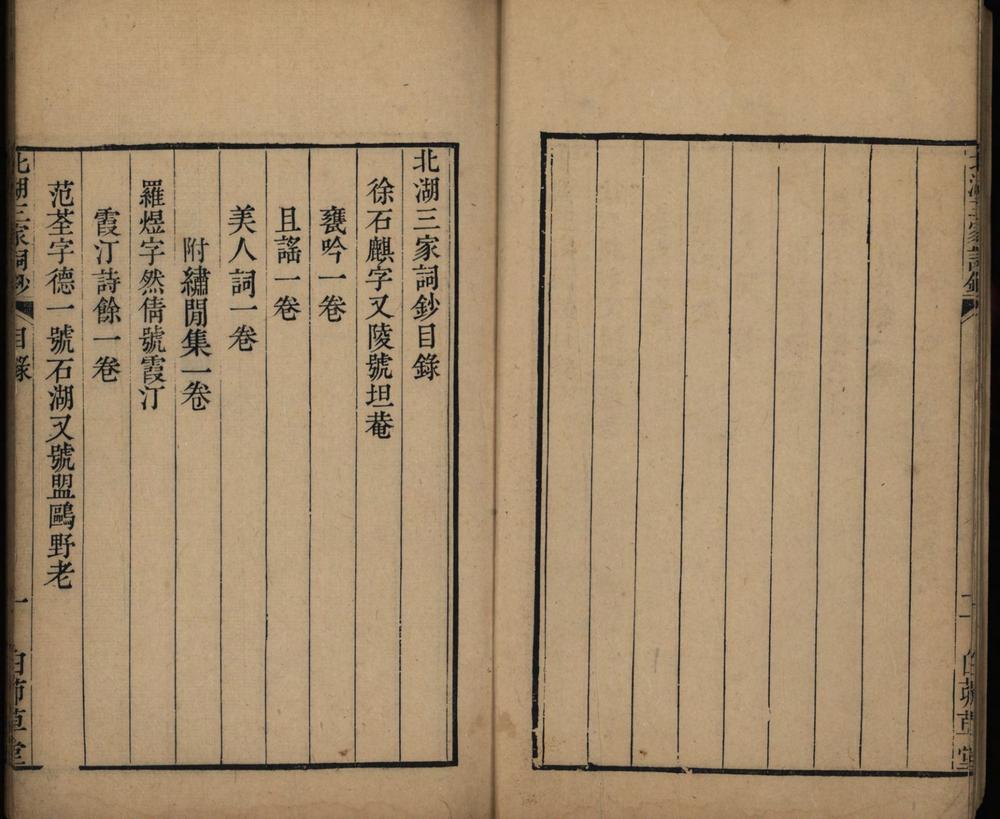 北湖三家詞鈔
二
北湖三家詞鈔目錄
徐石麒字又陵號坦菴
甕吟一卷
且謠一卷
美人詞一卷
附繡閒集一卷
羅煜字然倩號霞汀
霞汀詩餘一卷
范荃字德一號石湖又號盟鷗野老
北湖三家詞鈔
目錄
一
草堂